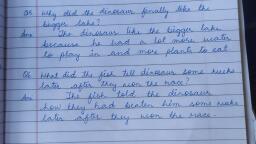 Q5 Why did the dinosaur finally like the
bigger lake?
Ans The dinosaur like the bigger lake
because he had a lot more water
to play in and more plants to eat
Q6 What did the fish tell dinosaur some weeks
later after they won the race?
Ans The fish told the dinosaur
how they had beaten him some weeks
later after they won the race.